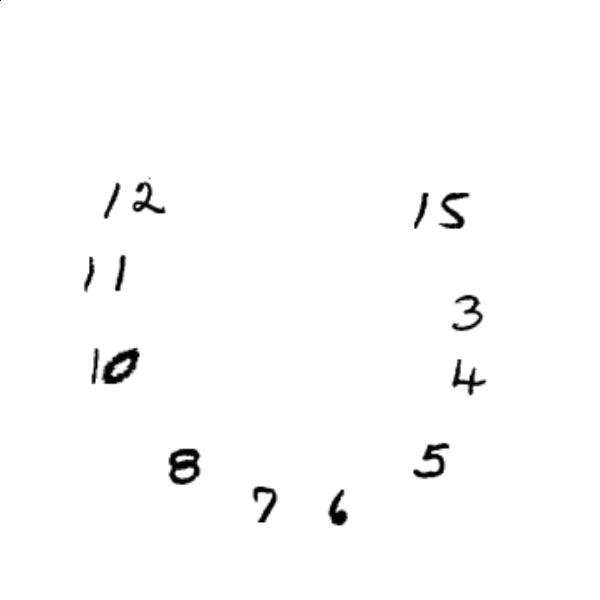 12
15
11
3
10
4
8
5
7
6